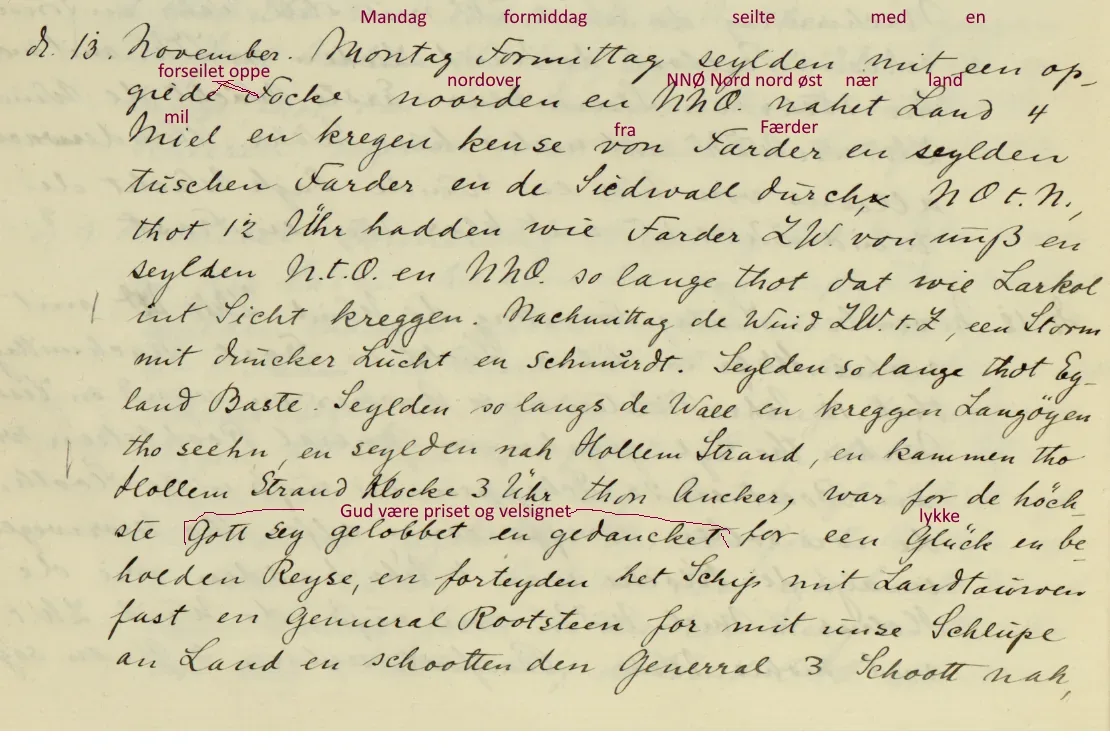 Mandag formiddag seilte med en
d. 13. November. Montag Formittag seylden mit een op-
forseilet oppe nordover NNØ Nord nord øst nær land
giede Focke noorden en NNO. nahet Land 4
mil fra Færder
Miel en kregen kense von Farder en seylden
tüschen Farder en de Siedwall dürch, N O t. N.,
thot 12 Ühr hadden wie Farder ZW. von ünß en
seylden N.t.O. en NNO. so lange thot dat wie Larkol
int Sicht kreggen. Nachmittag de Wind ZW. t. Z, een Storm
mit düncker Lücht en Schmürdt. Seylden so lange thot Ey-
land Baste. Seylden so langs de Wall en kreggen Langöyen
tho seehn, en seylden nah Hollem Strand, en kammen tho
Hollem Strand Klocke 3 Ühr thon Ancker, war for de höch-
Gud være priset og velsignet lykke
ste Gott sey gelobbet en gedancket for een Glück en be
holden Reyse, en forteyden het Schip mit Landtaüwen
fast en Genneral Rootsteen for mit ünse Schlüpe
an Land en schootten den Generral 3 Schoott nah,